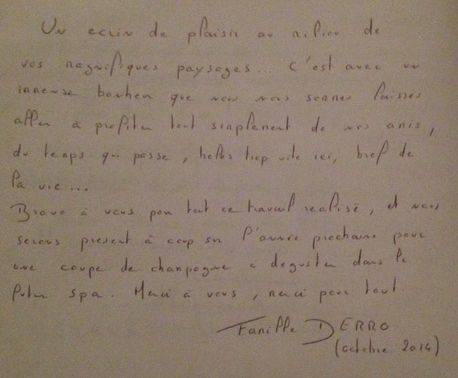 Un ecrin de plaisir au milieu de
vos magnifiques paysages... C'est avec un
immense bonheur que nous nous sommes laissés
aller à profiter tout simplement de nos amis,
du temps qui passe, helas trop vite ici, bref de
la vie...
Bravo à vous pour tout ce travail realisé, et nous
serons present à coup sur l'année prochaine pour
une coupe de champagne à deguster dans le
futur spa. Merci à vous, merci pour tout.
Famille DERRO
(octobre 2014)